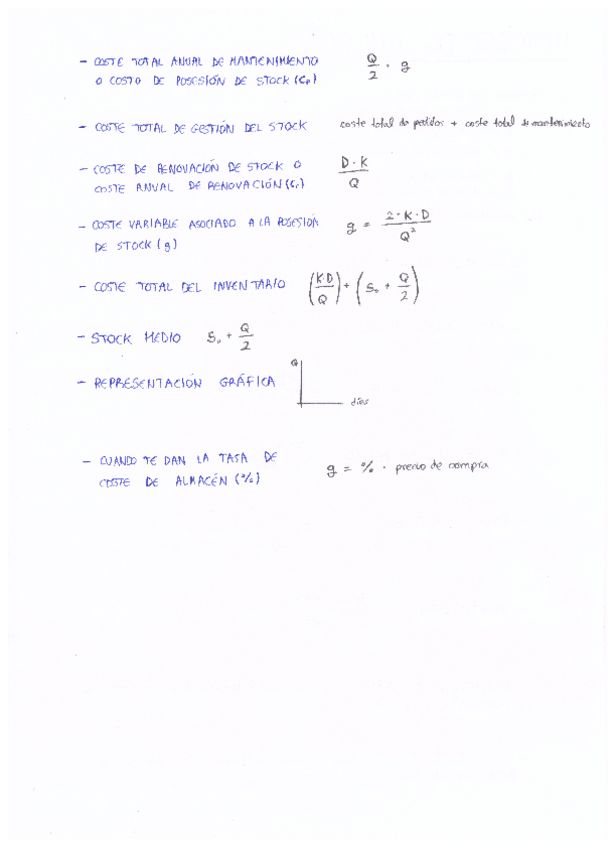 - COSTE TOTAL ANUAL DE MANTENIMIENTO Q/2 · g
O COSTO DE POSESIÓN DE STOCK (Cp)
- COSTE TOTAL DE GESTIÓN DEL STOCK coste total de pedidos + coste total de mantenimiento
- COSTE DE RENOVACIÓN DE STOCK O D·K/Q
COSTE ANUAL DE RENOVACIÓN (Cr)
- COSTE VARIABLE ASOCIADO A LA POSESIÓN g = 2·K·D/Q²
DE STOCK (g)
- COSTE TOTAL DEL INVENTARIO (K·D/Q) + (S₀ + Q/2)
- STOCK MEDIO S₀ + Q/2
- REPRESENTACIÓN GRÁFICA Q
días
- CUANDO TE DAN LA TASA DE g = % · precio de compra
COSTE DE ALMACÉN (%)